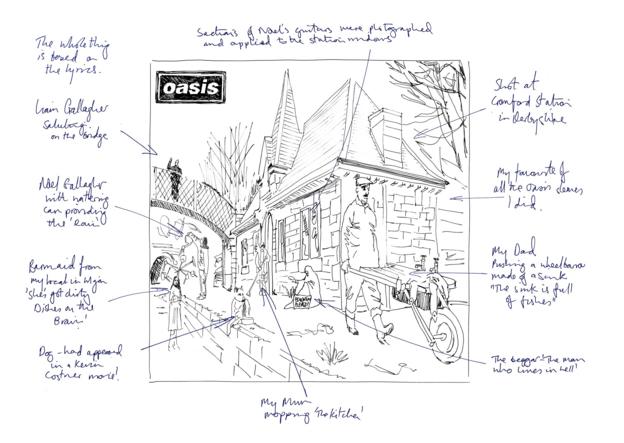 Sections of Noel's guitars were photographed
and applied to the station windows
The whole thing
is based on
the lyrics.
oasis
Liam Gallagher
on the bridge
Shot at
Cromford Station
in Derbyshire
Noel Gallagher
with watering
can providing
the 'rain'
My favourite of
all the Oasis sleeves
I did.
Barmaid from
my local in Wigan
'She's got dirty
Dishes on the
Brain'
My Dad
Pushing a wheelbarrow
made of a sink
"The sink is full
of fishes"
Dog - had appeared
in a Kevin
Costner movie!
The beggar - 'The man
who lives in hell'
My Mum
mopping 'The Kitchen'